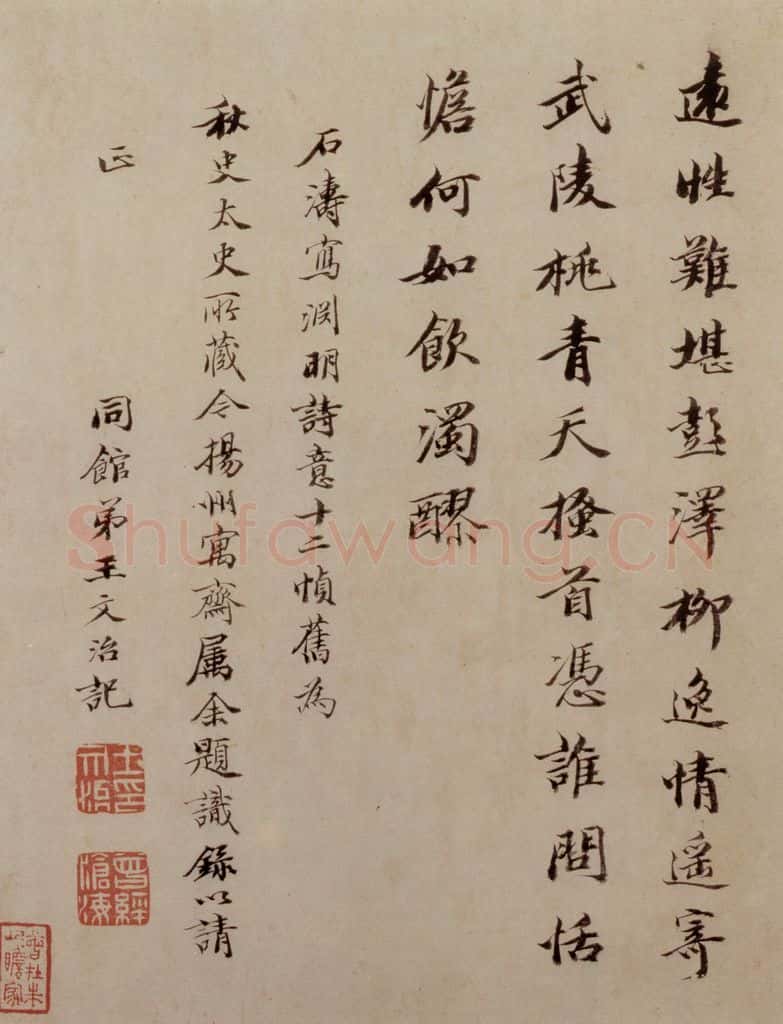 遠性難堪彭澤柳逸情遥寄
武陵桃青天搔首憑誰問恬
憺何如飲濁醪
石濤寫淵明詩意十二幀舊為
秋史太史所藏今揚州寓齋属余題識錄以請
正
同館弟王文治記
曾經滄海
Shufawang.CN